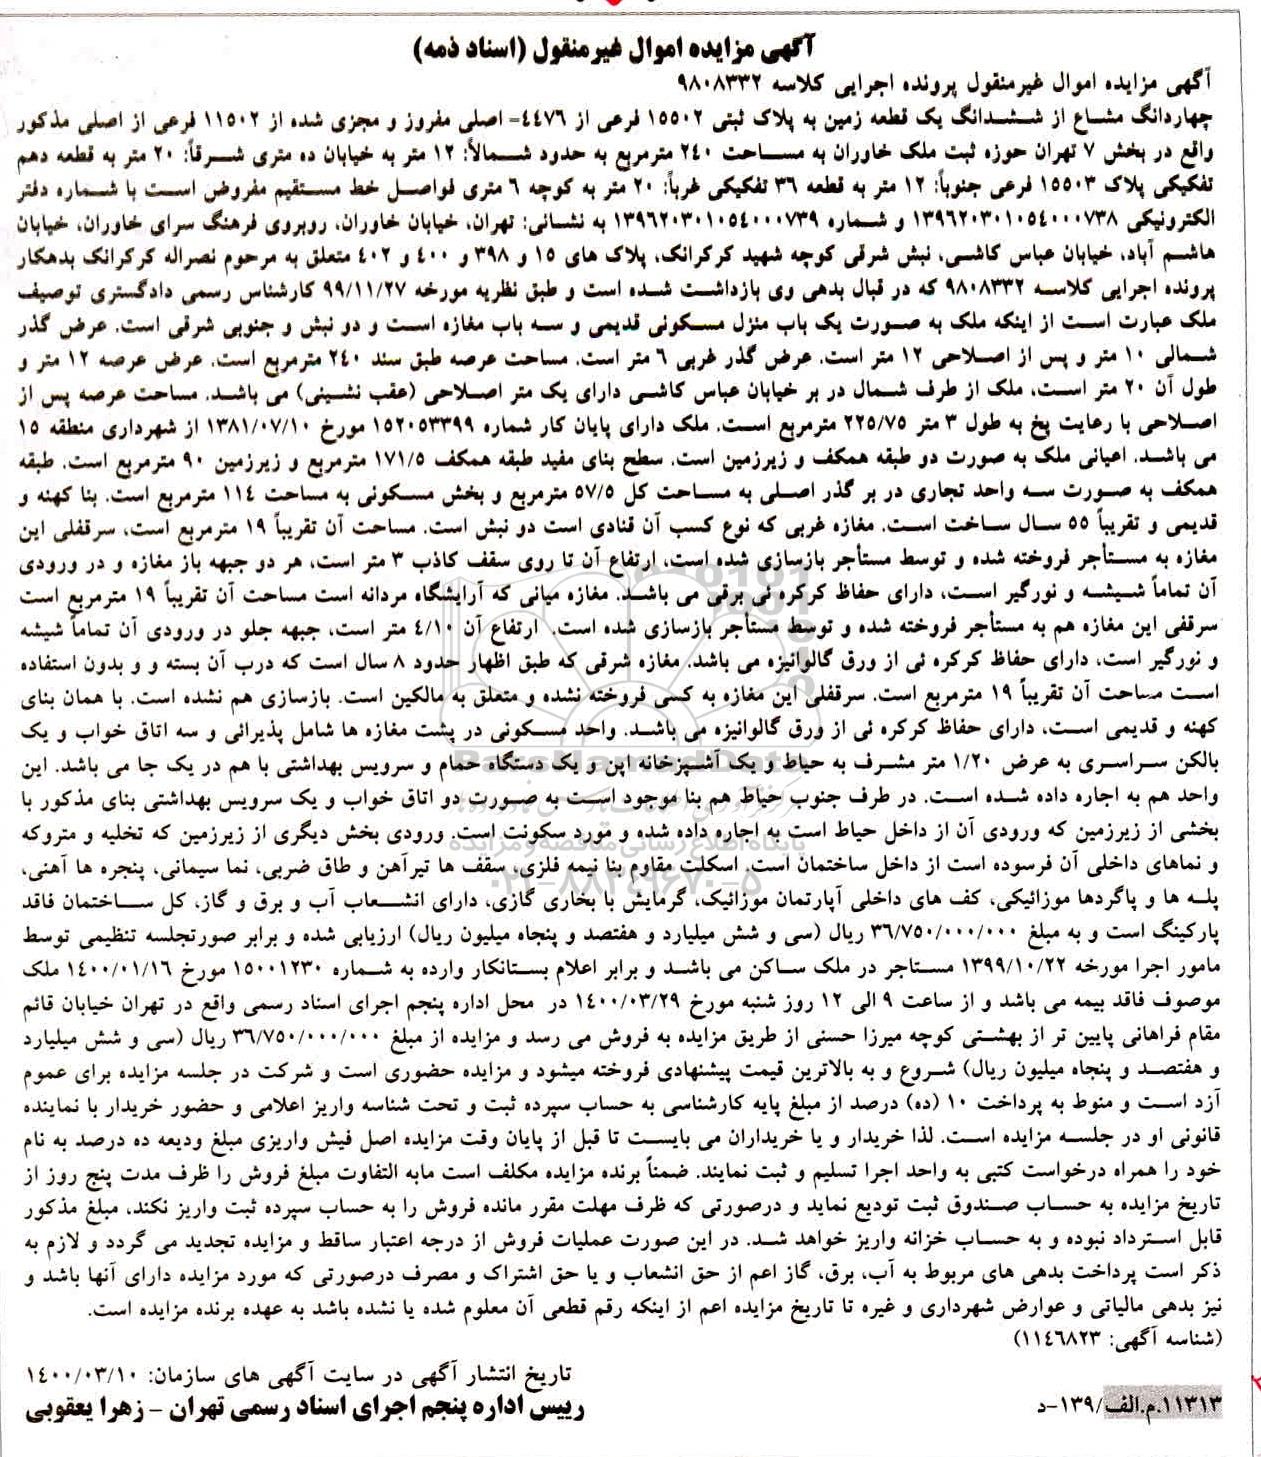 آگهی مزایده اموال غیرمنقول (اسناد ذمه)
آگهی مزایده اموال غیرمنقول پرونده اجرایی کلاسه ۹۸۰۸۳۳۲
چهاردانگ مشاع از ششدانگ یک قطعه زمین به پلاک ثبتی ۱۵۵۰۲ فرعی از ۴۴۷۶- اصلی مفروز و مجزی شده از ۱۱۵۰۲ فرعی از اصلی مذکور
واقع در بخش ۷ تهران حوزه ثبت ملک خاوران به مساحت ۲۴۰ مترمربع به حدود شمالاً: ۱۲ متر به خیابان ده متری شرقاً: ۲۰ متر به قطعه دهم
تفکیکی پلاک ۱۵۵۰۳ فرعی جنوباً: ۱۲ متر به قطعه ۳۶ تفکیکی غرباً: ۲۰ متر به کوچه ۶ متری فواصل خط مستقیم مفروض است با شماره دفتر
الکترونیکی ۱۳۹۶۲۰۳۰۱۰۵۴۰۰۰۷۳۸ و شماره ۱۳۹۶۲۰۳۰۱۰۵۴۰۰۰۷۳۹ به نشانی: تهران، خیابان خاوران، روبروی فرهنگ سرای خاوران، خیابان
هاشم آباد، خیابان عباس کاشی، نبش شرقی کوچه شهید کرکرانک، پلاک های ۱۵ و ۳۹۸ و ۴۰۰ و ۴۰۲ متعلق به مرحوم نصراله کرکرانک بدهکار
پرونده اجرایی کلاسه ۹۸۰۸۳۳۲ که در قبال بدهی وی بازداشت شده است و طبق نظریه مورخه ۹۹/۱۱/۲۷ کارشناس رسمی دادگستری توصیف
ملک عبارت است از اینکه ملک به صورت یک باب منزل مسکونی قدیمی و سه باب مغازه است و دو نبش و جنوبی شرقی است. عرض گذر
شمالی ۱۰ متر و پس از اصلاحی ۱۲ متر است. عرض گذر غربی ۶ متر است. مساحت عرصه طبق سند ۲۴۰ مترمربع است. عرض عرصه ۱۲ متر و
طول آن ۲۰ متر است، ملک از طرف شمال در بر خیابان عباس کاشی دارای یک متر اصلاحی (عقب نشینی) می باشد. مساحت عرصه پس از
اصلاحی با رعایت پخ به طول ۳ متر ۲۲۵/۷۵ مترمربع است. ملک دارای پایان کار شماره ۱۵۲۰۵۳۳۹۹ مورخ ۱۳۸۱/۰۷/۱۰ از شهرداری منطقه ۱۵
می باشد. اعیانی ملک به صورت دو طبقه همکف و زیرزمین است. سطح بنای مفید طبقه همکف ۱۷۱/۵ مترمربع و زیرزمین ۹۰ مترمربع است. طبقه
همکف به صورت سه واحد تجاری در بر گذر اصلی به مساحت کل ۵۷/۵ مترمربع و بخش مسکونی به مساحت ۱۱۴ مترمربع است. بنا کهنه و
قدیمی و تقریباً ۵۵ سال ساخت است. مغازه غربی که نوع کسب آن قنادی است دو نبش است. مساحت آن تقریباً ۱۹ مترمربع است، سرقفلی این
مغازه به مستأجر فروخته شده و توسط مستأجر بازسازی شده است، ارتفاع آن تا روی سقف کاذب ۳ متر است، هر دو جبهه باز مغازه و در ورودی
آن تماماً شیشه و نورگیر است، دارای حفاظ کرکره ئی برقی می باشد. مغازه میانی که آرایشگاه مردانه است مساحت آن تقریباً ۱۹ مترمربع است
سرقفی این مغازه هم به مستأجر فروخته شده و توسط مستأجر بازسازی شده است. ارتفاع آن ۴/۱۰ متر است، جبهه جلو در ورودی آن تماماً شیشه
و نورگیر است، دارای حفاظ کرکره ئی از ورق گالوانیزه می باشد. مغازه شرقی که طبق اظهار حدود ۸ سال است که درب آن بسته و و بدون استفاده
است مساحت آن تقریباً ۱۹ مترمربع است. سرقفلی این مغازه به کسی فروخته نشده و متعلق به مالکین است. بازسازی هم نشده است. با همان بنای
کهنه و قدیمی است، دارای حفاظ کرکره ئی از ورق گالوانیزه می باشد. واحد مسکونی در پشت مغازه ها شامل پذیرائی و سه اتاق خواب و یک
بالکن سراسری به عرض ۱/۲۰ متر مشرف به حیاط و یک آشپزخانه اپن و یک دستگاه حمام و سرویس بهداشتی با هم در یک جا می باشد. این
واحد هم به اجاره داده شده است. در طرف جنوب حیاط هم بنا موجود است به صورت دو اتاق خواب و یک سرویس بهداشتی بنای مذکور با
بخشی از زیرزمین که ورودی آن از داخل حیاط است به اجاره داده شده و مورد سکونت است. ورودی بخش دیگری از زیرزمین که تخلیه و متروکه
و نماهای داخلی آن فرسوده است از داخل ساختمان است. اسکلت مقاوم بنا نیمه فلزی، سقف ها تیرآهن و طاق ضربی، نما سیمانی، پنجره ها آهنی،
پله ها و پاگردها موزائیکی، کف های داخلی آپارتمان موزائیک، گرمایش با بخاری گازی، دارای انشعاب آب و برق و گاز، کل ساختمان فاقد
پارکینگ است و به مبلغ ۳۶/۷۵۰/۰۰۰/۰۰۰ ریال (سی و شش میلیارد و هفتصد و پنجاه میلیون ریال) ارزیابی شده و برابر صورتجلسه تنظیمی توسط
مامور اجرا مورخه ۱۳۹۹/۱۰/۲۲ مستاجر در ملک ساکن می باشد و برابر اعلام بستانکار وارده به شماره ۱۵۰۰۱۲۳۰ مورخ ۱۴۰۰/۰۱/۱۶ ملک
موصوف فاقد بیمه می باشد و از ساعت ۹ الی ۱۲ روز شنبه مورخ ۱۴۰۰/۰۳/۲۹ در محل اداره پنجم اجرای اسناد رسمی واقع در تهران خیابان قائم
مقام فراهانی پایین تر از بهشتی کوچه میرزا حسنی از طریق مزایده به فروش می رسد و مزایده از مبلغ ۳۶/۷۵۰/۰۰۰/۰۰۰ ریال (سی و شش میلیارد
و هفتصد و پنجاه میلیون ریال) شروع و به بالاترین قیمت پیشنهادی فروخته میشود و مزایده حضوری است و شرکت در جلسه مزایده برای عموم
آزد است و منوط به پرداخت ۱۰ (ده) درصد از مبلغ پایه کارشناسی به حساب سپرده ثبت و تحت شناسه واریز اعلامی و حضور خریدار با نماینده
قانونی او در جلسه مزایده است. لذا خریدار و یا خریداران می بایست تا قبل از پایان وقت مزایده اصل فیش واریزی مبلغ ودیعه ده درصد به نام
خود را همراه درخواست کتبی به واحد اجرا تسلیم و ثبت نمایند. ضمناً برنده مزایده مکلف است مابه التفاوت مبلغ فروش را ظرف مدت پنج روز از
تاریخ مزایده به حساب صندوق ثبت تودیع نماید و درصورتی که ظرف مهلت مقرر مانده فروش را به حساب سپرده ثبت واریز نکند، مبلغ مذکور
قابل استرداد نبوده و به حساب خزانه واریز خواهد شد. در این صورت عملیات فروش از درجه اعتبار ساقط و مزایده تجدید می گردد و لازم به
ذکر است پرداخت بدهی های مربوط به آب، برق، گاز اعم از حق انشعاب و یا حق اشتراک و مصرف درصورتی که مورد مزایده دارای آنها باشد و
نیز بدهی مالیاتی و عوارض شهرداری و غیره تا تاریخ مزایده اعم از اینکه رقم قطعی آن معلوم شده یا نشده باشد به عهده برنده مزایده است.
(شناسه آگهی: ۱۱۴۶۸۲۳)
تاریخ انتشار آگهی در سایت آگهی های سازمان: ۱۴۰۰/۰۳/۱۰
رییس اداره پنجم اجرای اسناد رسمی تهران - زهرا یعقوبی
۱۱۳۱۳.م.الف/۱۳۹-د
پایگاه اطلاع رسانی مناقصه و مزایده
۰۲۱-۸۸۳۴۹۶۷۰-۵